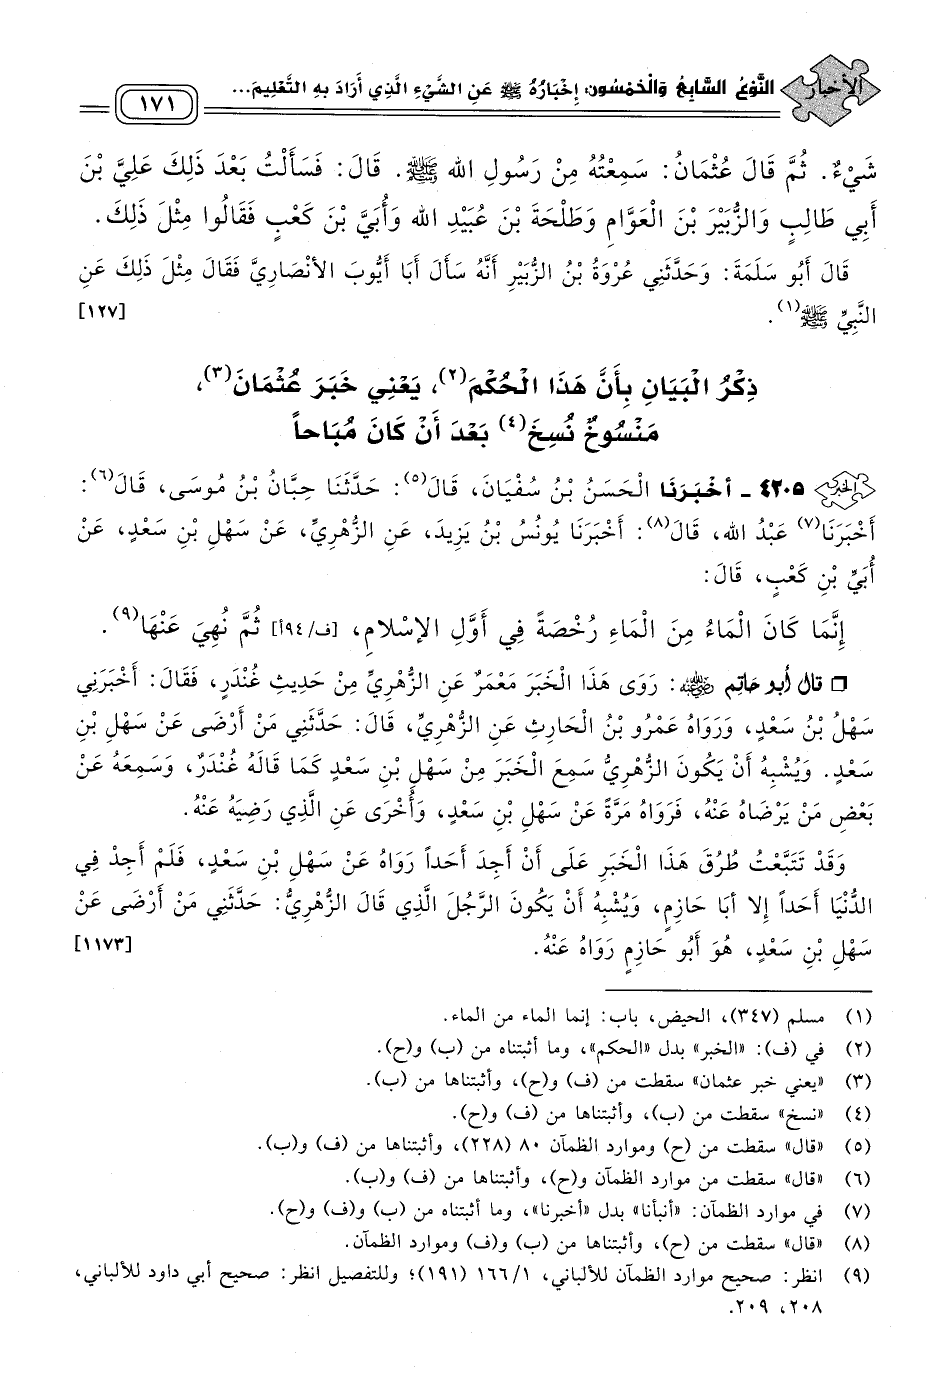 الأخبار
النَّوْعُ السَّابِعُ وَالْخَمْسُون: إِخْبَارُهُ ﷺ عَنِ الشَّيْءِ الَّذِي أَرَادَ بِهِ التَّعْلِيمَ...
١٧١
شَيْءٌ. ثُمَّ قَالَ عُثْمَانُ: سَمِعْتُهُ مِنْ رَسُولِ الله ﷺ. قَالَ: فَسَأَلْتُ بَعْدَ ذَلِكَ عَلِيَّ بْنَ
أَبِي طَالِبٍ وَالزُّبَيْرَ بْنَ الْعَوَّامِ وَطَلْحَةَ بْنَ عُبَيْدِ الله وَأُبَيَّ بْنَ كَعْبٍ فَقَالُوا مِثْلَ ذَلِكَ.
قَالَ أَبُو سَلَمَةَ: وَحَدَّثَنِي عُرْوَةُ بْنُ الزُّبَيْرِ أَنَّهُ سَأَلَ أَبَا أَيُّوبَ الأَنْصَارِيَّ فَقَالَ مِثْلَ ذَلِكَ عَنِ
النَّبِيِّ ﷺ(١). [١٢٧]
ذِكْرُ الْبَيَانِ بِأَنَّ هَذَا الْحُكْمَ(٢)، يَعْنِي خَبَرَ عُثْمَانَ(٣)،
مَنْسُوخٌ نُسِخَ(٤) بَعْدَ أَنْ كَانَ مُبَاحاً
الخبر ٤٢٠٥ - أَخْبَرَنَا الْحَسَنُ بْنُ سُفْيَانَ، قَالَ(٥): حَدَّثَنَا حِبَّانُ بْنُ مُوسَى، قَالَ(٦):
أَخْبَرَنَا(٧) عَبْدُ الله، قَالَ(٨): أَخْبَرَنَا يُونُسُ بْنُ يَزِيدَ، عَنِ الزُّهْرِيِّ، عَنْ سَهْلِ بْنِ سَعْدٍ، عَنْ
أُبَيِّ بْنِ كَعْبٍ، قَالَ:
إِنَّمَا كَانَ الْمَاءُ مِنَ الْمَاءِ رُخْصَةً فِي أَوَّلِ الإِسْلامِ، [ف/٩٤أ] ثُمَّ نُهِيَ عَنْهَا(٩).
❒ قال أبو حاتم رضي الله عنه: رَوَى هَذَا الْخَبَرَ مَعْمَرٌ عَنِ الزُّهْرِيِّ مِنْ حَدِيثِ غُنْدَرٍ، فَقَالَ: أَخْبَرَنِي
سَهْلُ بْنُ سَعْدٍ، وَرَوَاهُ عَمْرُو بْنُ الْحَارِثِ عَنِ الزُّهْرِيِّ، قَالَ: حَدَّثَنِي مَنْ أَرْضَى عَنْ سَهْلِ بْنِ
سَعْدٍ. وَيُشْبِهُ أَنْ يَكُونَ الزُّهْرِيُّ سَمِعَ الْخَبَرَ مِنْ سَهْلِ بْنِ سَعْدٍ كَمَا قَالَهُ غُنْدَرٌ، وَسَمِعَهُ عَنْ
بَعْضِ مَنْ يَرْضَاهُ عَنْهُ، فَرَوَاهُ مَرَّةً عَنْ سَهْلِ بْنِ سَعْدٍ، وَأُخْرَى عَنِ الَّذِي رَضِيَهُ عَنْهُ.
وَقَدْ تَتَبَّعْتُ طُرُقَ هَذَا الْخَبَرِ عَلَى أَنْ أَجِدَ أَحَداً رَوَاهُ عَنْ سَهْلِ بْنِ سَعْدٍ، فَلَمْ أَجِدْ فِي
الدُّنْيَا أَحَداً إِلا أَبَا حَازِمٍ، وَيُشْبِهُ أَنْ يَكُونَ الرَّجُلَ الَّذِي قَالَ الزُّهْرِيُّ: حَدَّثَنِي مَنْ أَرْضَى عَنْ
سَهْلِ بْنِ سَعْدٍ، هُوَ أَبُو حَازِمٍ رَوَاهُ عَنْهُ. [١١٧٣]
(١) مسلم (٣٤٧)، الحيض، باب: إنما الماء من الماء.
(٢) في (ف): «الخبر» بدل «الحكم»، وما أثبتناه من (ب) و(ح).
(٣) «يعني خبر عثمان» سقطت من (ف) و(ح)، وأثبتناها من (ب).
(٤) «نسخ» سقطت من (ب)، وأثبتناها من (ف) و(ح).
(٥) «قال» سقطت من (ح) وموارد الظمآن ٨٠ (٢٢٨)، وأثبتناها من (ف) و(ب).
(٦) «قال» سقطت من موارد الظمآن و(ح)، وأثبتناها من (ف) و(ب).
(٧) في موارد الظمآن: «أنبأنا» بدل «أخبرنا»، وما أثبتناه من (ب) و(ف) و(ح).
(٨) «قال» سقطت من (ح)، وأثبتناها من (ب) و(ف) وموارد الظمآن.
(٩) انظر: صحيح موارد الظمآن للألباني، ١/ ١٦٦ (١٩١)؛ وللتفصيل انظر: صحيح أبي داود للألباني،
٢٠٨، ٢٠٩.